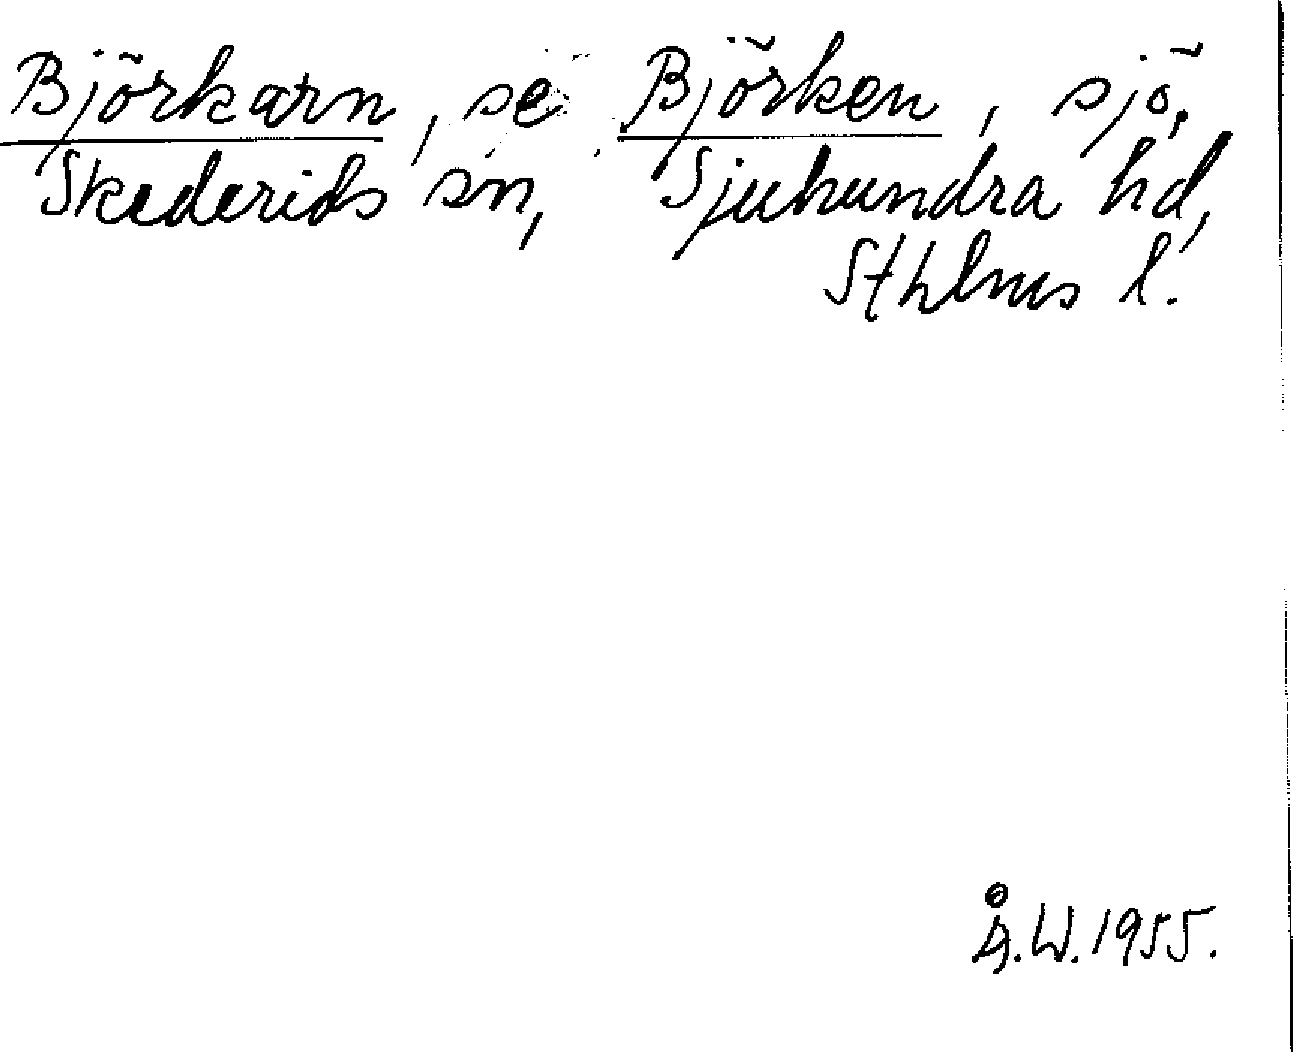 Björkarn, se Björken, sjö,
Skederids sn, Sjuhundra hd,
Sthlms l.
Å.W. 1955.